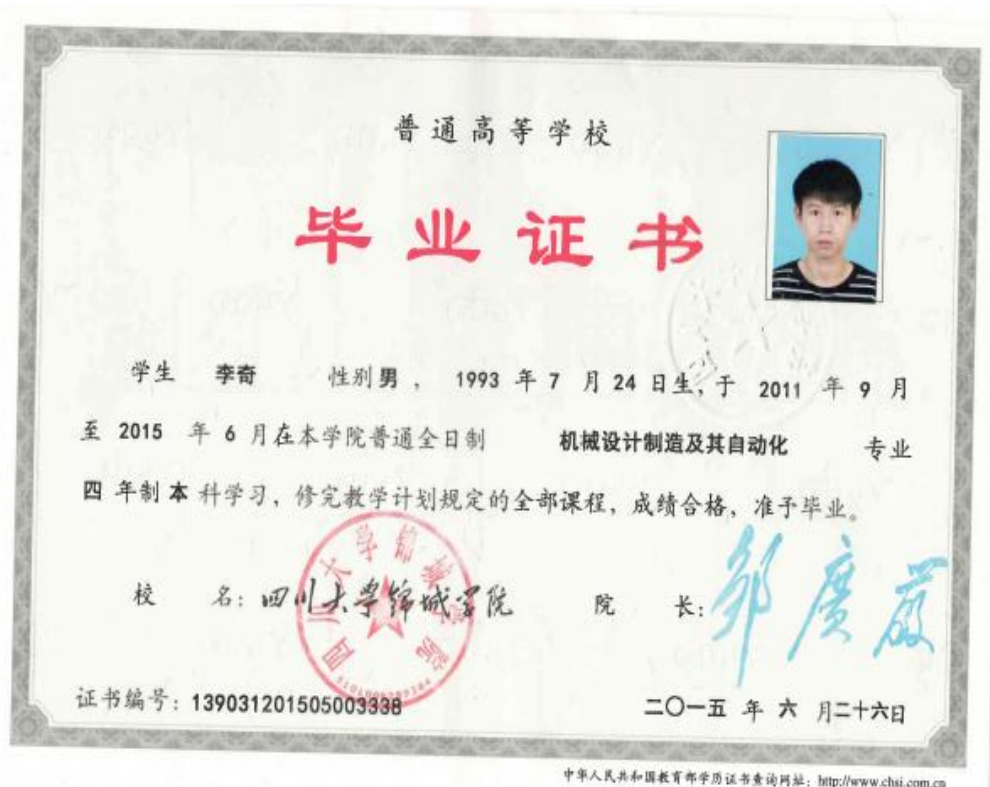 普通高等学校
毕业证书
学生 李奇 性别 男 , 1993 年 7 月 24 日生, 于 2011 年 9 月
至 2015 年 6 月在本学院普通全日制 机械设计制造及其自动化 专业
四 年制 本 科学习, 修完教学计划规定的全部课程, 成绩合格, 准予毕业。
校 名: 四川大学锦城学院 院 长: 邹广严
四川大学锦城学院
证书编号: 139031201505003338 二〇一五 年 六 月二十六日
中华人民共和国教育部学历证书查询网址: http://www.chsi.com.cn